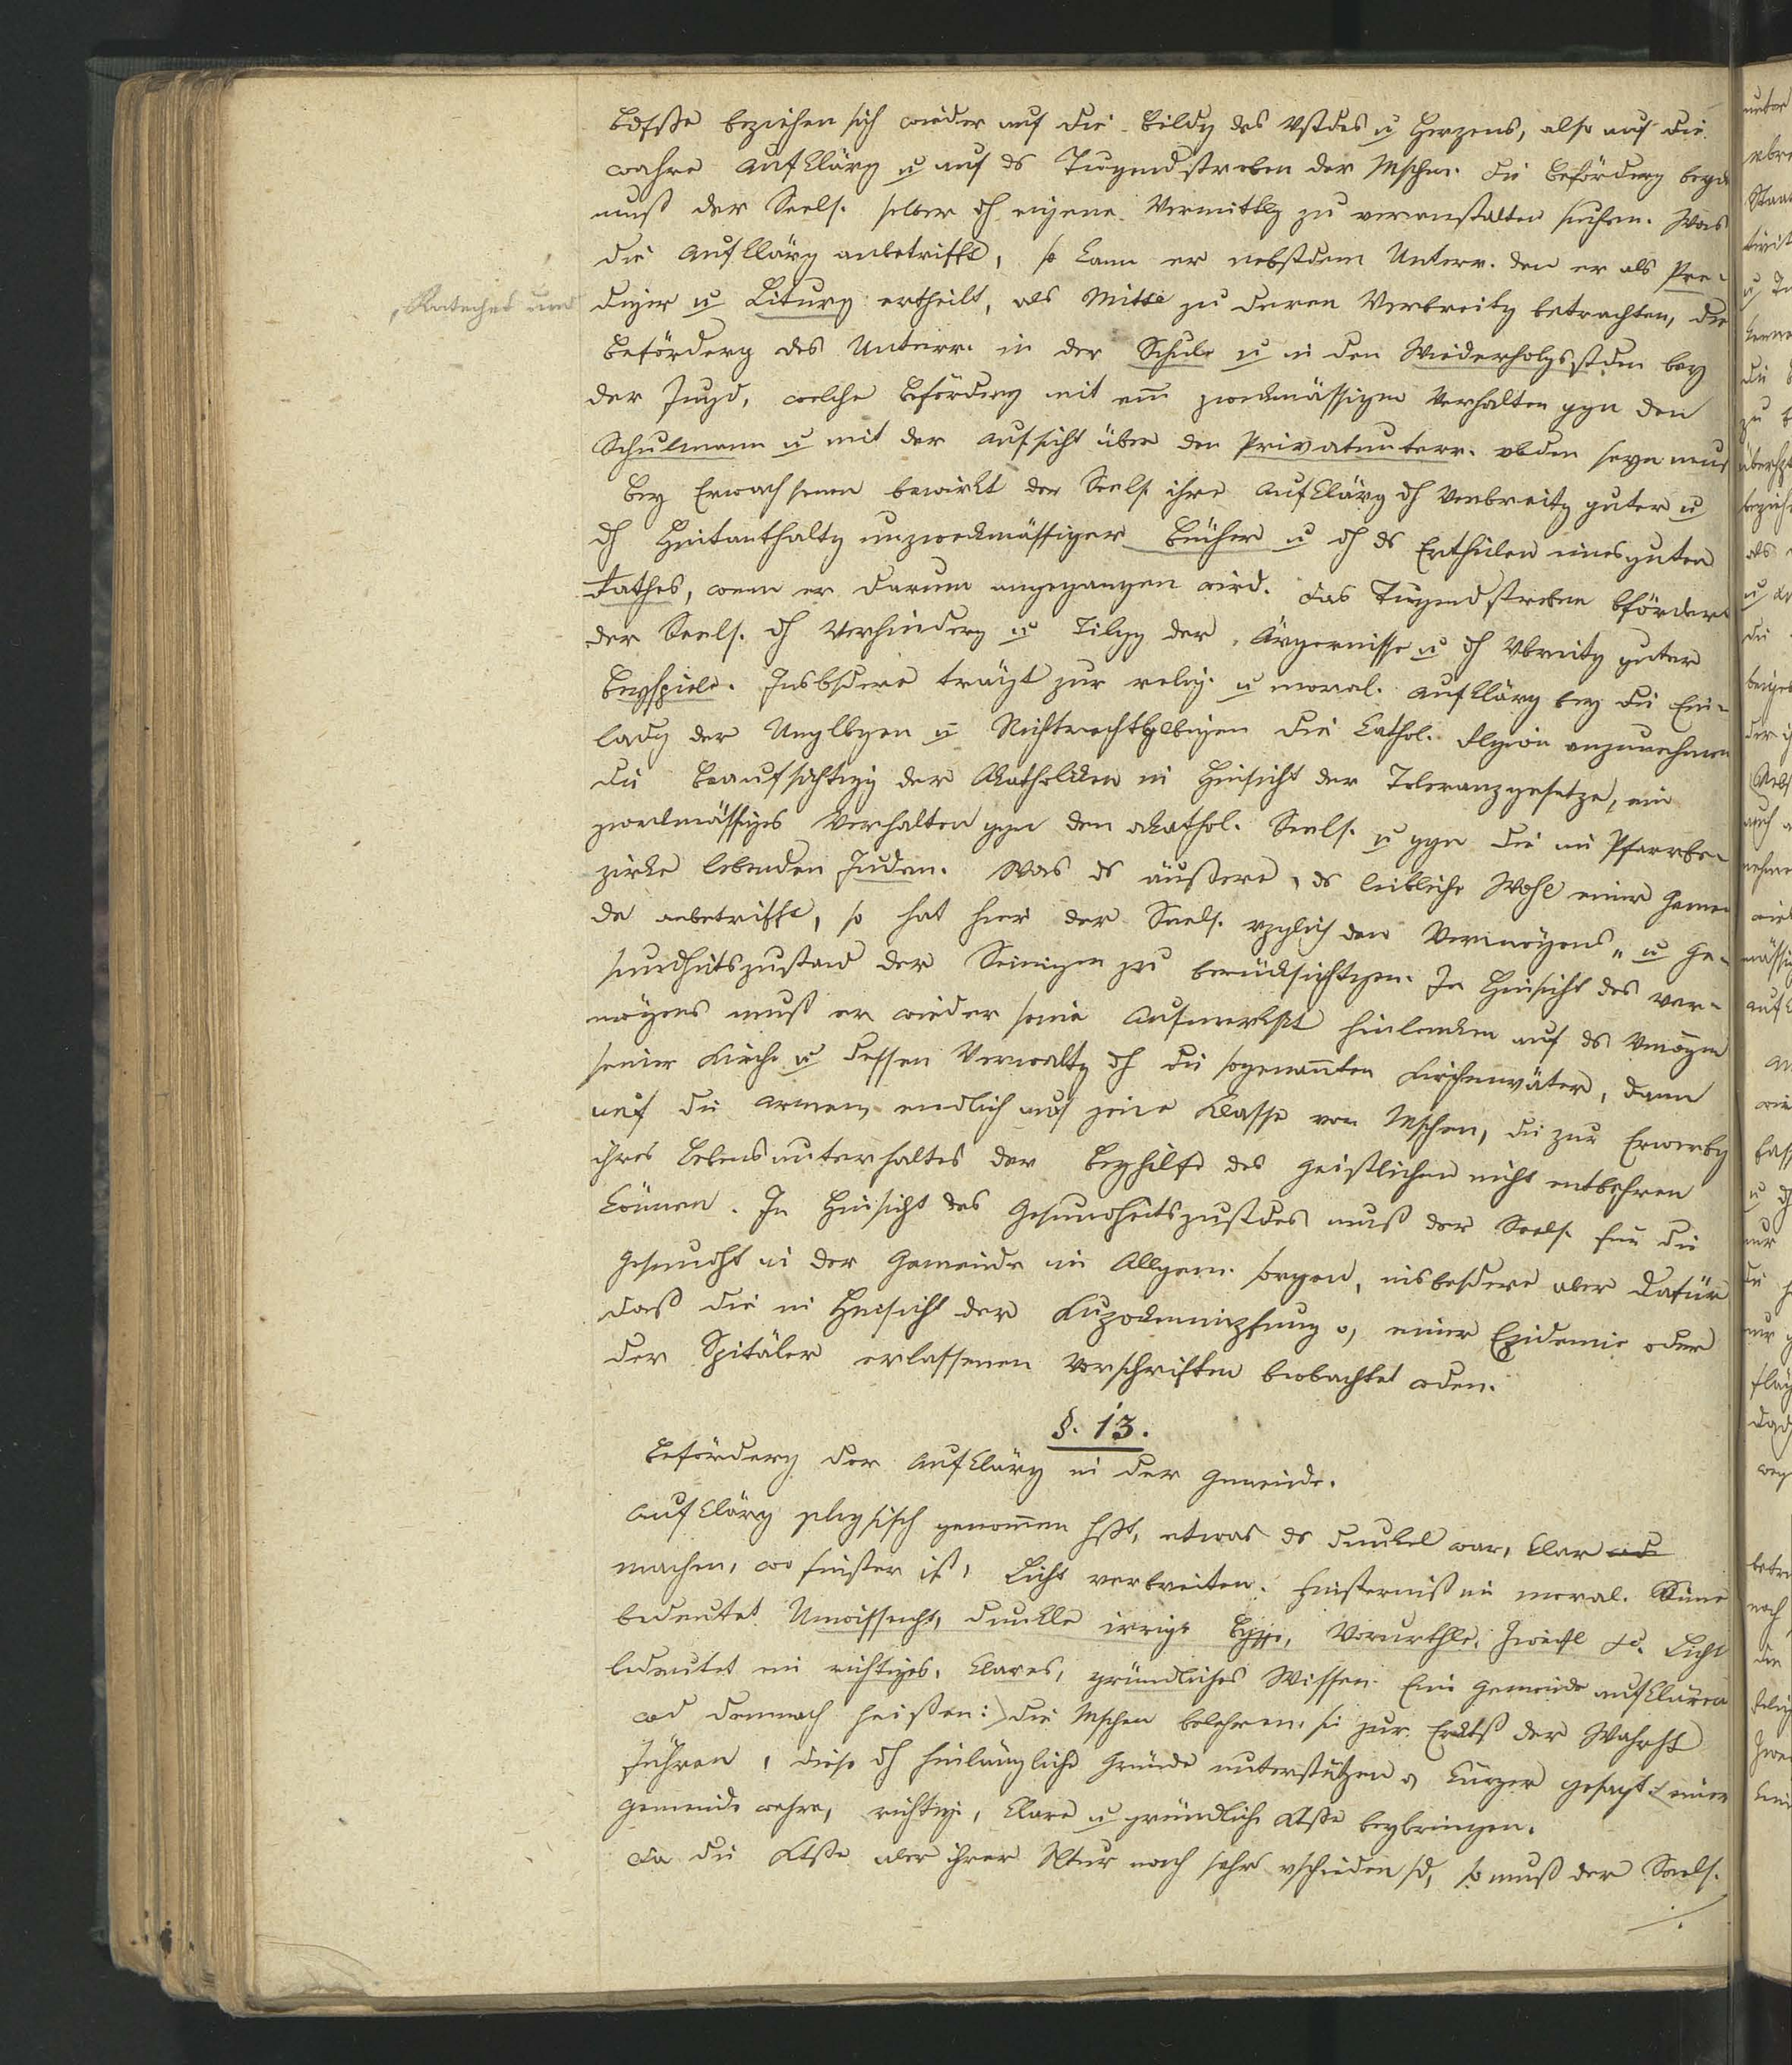 Bdfße beziehen sich wieder auf die Bildg des Vstdes u Herzens, also auf die
wahre Aufklärg u auf ds Tugendstreben der Mschen. Die Beförderg beyder
muß der Seels. selber dh eigene Vermittlg zu veranstalten suchen. Was
die Aufklärg anbetrifft, so kann er nebstdem Unterr. den er als Pre-
Katechet und
diger u Liturg ertheilt, als Mittel zu deren Verbreitg betrachten, die
Beförderg des Unterr. in der Schule u in den Wiederholgsstden bey
der Jugd, welche Beförderg mit einem zweckmässigen Verhalten ggn den
Schulmann u mit der Aufsicht über den Privatunterr. vbden seyn muß
Bey Erwachsenen bewirkt der Seels. ihre Aufklärg dh Verbreitg guter u
dh Hintanhaltg unzweckmässiger Bücher u dh ds Ertheilen eines guten
Rathes, wenn er darum angegangen wird. Das Tugendstreben befördert
der Seels. dh Verhinderg u Tilgg der Ärgernisse u dh Vbreitg guter
Beyspiele. Insbsdere trägt zur relig. u moral. Aufklärg bey die Ein-
ladg der Unglbgen u Nichtrechtglbigen die kathol. Rlgion anzunehmen
die Beaufsichtigg der Akatholiken in Hinsicht der Toleranzgesetze, ein
zweckmässiges Verhalten ggn den akathol. Seels. u ggn die im Pfarrbe-
zirke lebenden Juden. Was ds äußere, ds leibliche Wohl einer Gemein
de anbetrifft, so hat hier der Seels. vzglich den Vermögens- u Ge-
sundheitszustand der Seinigen zu berücksichtigen. In Hinsicht des Ver-
mögens muß er wieder seine Aufmerkskt hinlenken auf ds Vmögen
seiner Kirche u dessen Verwaltg dh die sogenannten Kirchenväter, dann
auf die Armen, endlich auf jene Klasse von Mschen, die zur Erwerbg
ihres Lebensunterhaltes der Beyhilfe des Geistlichen nicht entbehren
können. In Hinsicht des Gesundheitszustdes muß der Seels. für die
Gesundht in der Gemeinde im Allgem. sorgen, insbesdere aber dafür
daß die in Hinsicht der Kuhpockenimpfung o, einer Epidemie oder
der Spitäler erlassenen Vorschriften beobachtet wden.
§. 13.
Beförderg der Aufklärg in der Gemeinde.
Aufklärg physisch genommen hßt, etwas ds dunkel war, klar
machen, wo finster ist, Licht verbreiten. Finsterniß im moral. Sinne
bedeutet Unwissenht, dunkle irrige Bgffe, Vorurthle, Zweifl &c. Licht
bedeutet ein richtiges, klares, gründliches Wissen. Eine Gemeinde aufklären
wd demnach heißen: die Mschen belehren, sie zur Erktß der Wahrht
führen, diese dh hinlängliche Gründe unterstützen o, kürzer gesagt einer
Gemeinde wahre, richtige, klare u gründliche Ktße beybringen.
Da die Ktße aber ihrer Ntur nach sehr vschieden sd, so muß der Seels.